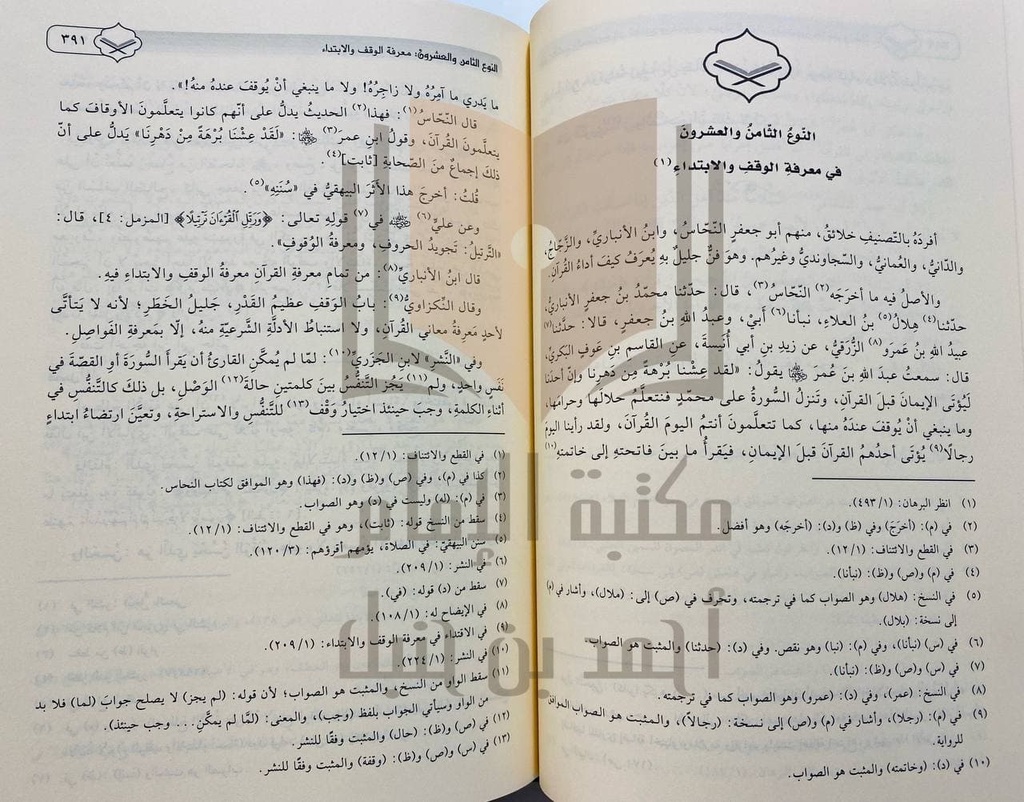 النوع الثامن والعشرون
في معرفة الوقف والابتداء (١)
أفردَهُ بالتّصنيفِ خلائقُ، منهم أبو جعفرٍ النّحّاسُ، وابنُ الأنباريِّ، والزَّجّاجُ،
والدّانيُّ، والعُمانيُّ، والسّجاونديُّ وغيرُهم. وهوَ فَنٌّ جليلٌ بهِ يُعرَفُ كيفَ أداءُ القُرآنِ.
والأصلُ فيه ما أخرَجَه(٢) النّحّاسُ(٣)، قال: حدّثنا محمّدُ بنُ جعفرٍ الأنباريُّ،
حدّثنا(٤) هِلالُ(٥) بنُ العلاءِ، نبأنا(٦) أَبيْ، وعبدُ اللهِ بنُ جعفرٍ، قالا: حدَّثنا(٧)
عبيدُ اللهِ بنُ عَمرَو(٨) الزُّرَقيُّ، عن زيدِ بنِ أبي أُنَيسةَ، عنِ القاسمِ بنِ عَوفٍ البَكريِّ،
قال: سمعتُ عبدَ اللهِ بنَ عُمرَ ﷺ يقولُ: «لقد عِشْنا بُرْهةً مِن دَهرِنا وإنّ أحدَنا
لَيُؤتَى الإيمانَ قبلَ القرآنِ، وتنزِلُ السّورةُ على محمّدٍ فنتعلَّمُ حلالَها وحرامَها،
وما ينبغي أنْ يُوقَفَ عندَهُ منها، كما تتعلَّمونَ أنتمُ اليومَ القُرآنَ، ولقد رأينا اليومَ
رجالًا(٩) يُؤتَى أحدُهُم القرآنَ قبلَ الإيمانِ، فيَقرأُ ما بينَ فاتحتِهِ إلى خاتمتِهِ(١٠)
(١) انظر البرهان: (١/ ٤٩٣).
(٢) في (م): (أخرَجَ)، وفي (ظ) و(د): (أخرجَه) وهو أفضل.
(٣) في القطع والائتناف: (١/ ١٢).
(٤) في (م) و(ص) و(ظ): (نبأنا).
(٥) في النسخ: (هلال) وهو الصواب كما في ترجمته، وتحرف في (ص) إلى: (ملال)، وأشار في (م)
إلى نسخة: (بلال).
(٦) في (س) (نبأنا)، وفي (م): (نبا) وهو نقص. وفي (د): (حدثنا) والمثبت هو الصواب.
(٧) في (س) و(ص) و(ظ): (نبأنا).
(٨) في النسخ: (عمر)، وفي (د): (عمرو) وهو الصواب كما في ترجمته.
(٩) في (م): (رجلا)، وأشار في (م) و(ص) إلى نسخة: (رجالاً)، والمثبت هو الصواب الموافق
للرواية.
(١٠) في (د): (وخاتمته) والمثبت هو الصواب.
النوع الثامن والعشرون: معرفة الوقف والابتداء
٣٩١
ما يَدري ما آمِرُهُ ولا زاجِرُهُ! ولا ما ينبغي أنْ يُوقَفَ عندَهُ منهُ!».
قال النّحّاسُ(١): فهذا(٢) الحديثُ يدلُّ على أنّهم كانوا يتعلَّمونَ الأوقافَ كما
يتعلّمونَ القُرآنَ، وقولُ ابنِ عمرَ(٣) ﷺ: «لَقَدْ عِشْنا بُرْهَةً مِنْ دَهْرِنا» يَدلُّ على أنّ
ذلكَ إجماعٌ منَ الصّحابةِ [ثابت](٤).
قُلتُ: أخرجَ هذا الأثرَ البيهقيُّ في «سُنَنِهِ»(٥).
وعن عليٍّ(٦) ﷺ في(٧) قولِه تعالى: ﴿وَرَتِّلِ ٱلۡقُرۡءَانَ تَرۡتِيلًا﴾ [المزمل: ٤]، قال:
«التّرتيلُ: تَجويدُ الحروفِ، ومَعرفةُ الوُقوفِ».
قال ابنُ الأنباريِّ(٨): من تمامِ معرفةِ القرآنِ معرفةُ الوَقفِ والابتداءِ فيهِ.
وقال النّكزاويُّ(٩): بابُ الوَقفِ عظيمُ القَدْرِ، جَليلُ الخَطَرِ؛ لأنه لا يَتأتَّى
لأحدٍ مَعرفةُ معاني القُرآنِ، ولا استنباطُ الأدلّةِ الشّرعيّةِ منهُ، إلّا بمَعرِفةِ الفَواصِلِ.
وفي «النَّشرِ» لابنِ الجَزَريِّ(١٠): لمّا لم يُمكَّنِ القارئُ أن يَقرأَ السُّورَةَ أو القصّةَ في
نَفَسٍ واحدٍ، ولم(١١) يَجُزِ التَّنفُّسُ بينَ كلمتينِ حالةَ(١٢) الوَصْلِ، بل ذلكَ كالتّنفُّسِ في
أثناءِ الكلمةِ، وجبَ حينئذٍ اختيارُ وَقْفٍ(١٣) للتَّنفُّسِ والاستراحةِ، وتعيَّنَ ارتضاءُ ابتداءٍ
(١) في القطع والائتناف: (١/ ١٢).
(٢) كذا في (م)، وفي (ص) و(ظ) و(د): (فهذا) وهو الموافق لكتاب النحاس.
(٣) في (م): (له) وليست في (د) وهو الصواب.
(٤) سقط من النسخ قوله: (ثابت)، وهو في القطع والائتناف: (١/ ١٢).
(٥) سنن البيهقي: في الصلاة، يؤمهم أقرؤهم: (٣/ ١٢٠).
(٦) في النشر: (١/ ٢٠٩).
(٧) سقط من (د) قوله: (في).
(٨) في الإيضاح له: (١/ ١٠٨).
(٩) في الاقتداء في معرفة الوقف والابتداء: (١/ ٢٠٩).
(١٠) في النشر: (١/ ٢٢٤).
(١١) سقط الواو من النسخ، والمثبت هو الصواب؛ لأن قوله: (لم يجز) لا يصلح جوابَ (لما) فلا بد
من الواو وسيأتي الجواب بلفظ (وجب)، والمعنى: (لمَّا لم يمكَّن... وجب حينئذ).
(١٢) في (ص) و(ظ): (حال) والمثبت وفقًا للنشر.
(١٣) في (س) و(ص) و(ظ): (وقفة) والمثبت وفقًا للنشر.
مكتبة الإمام
أحمد بن حنبل